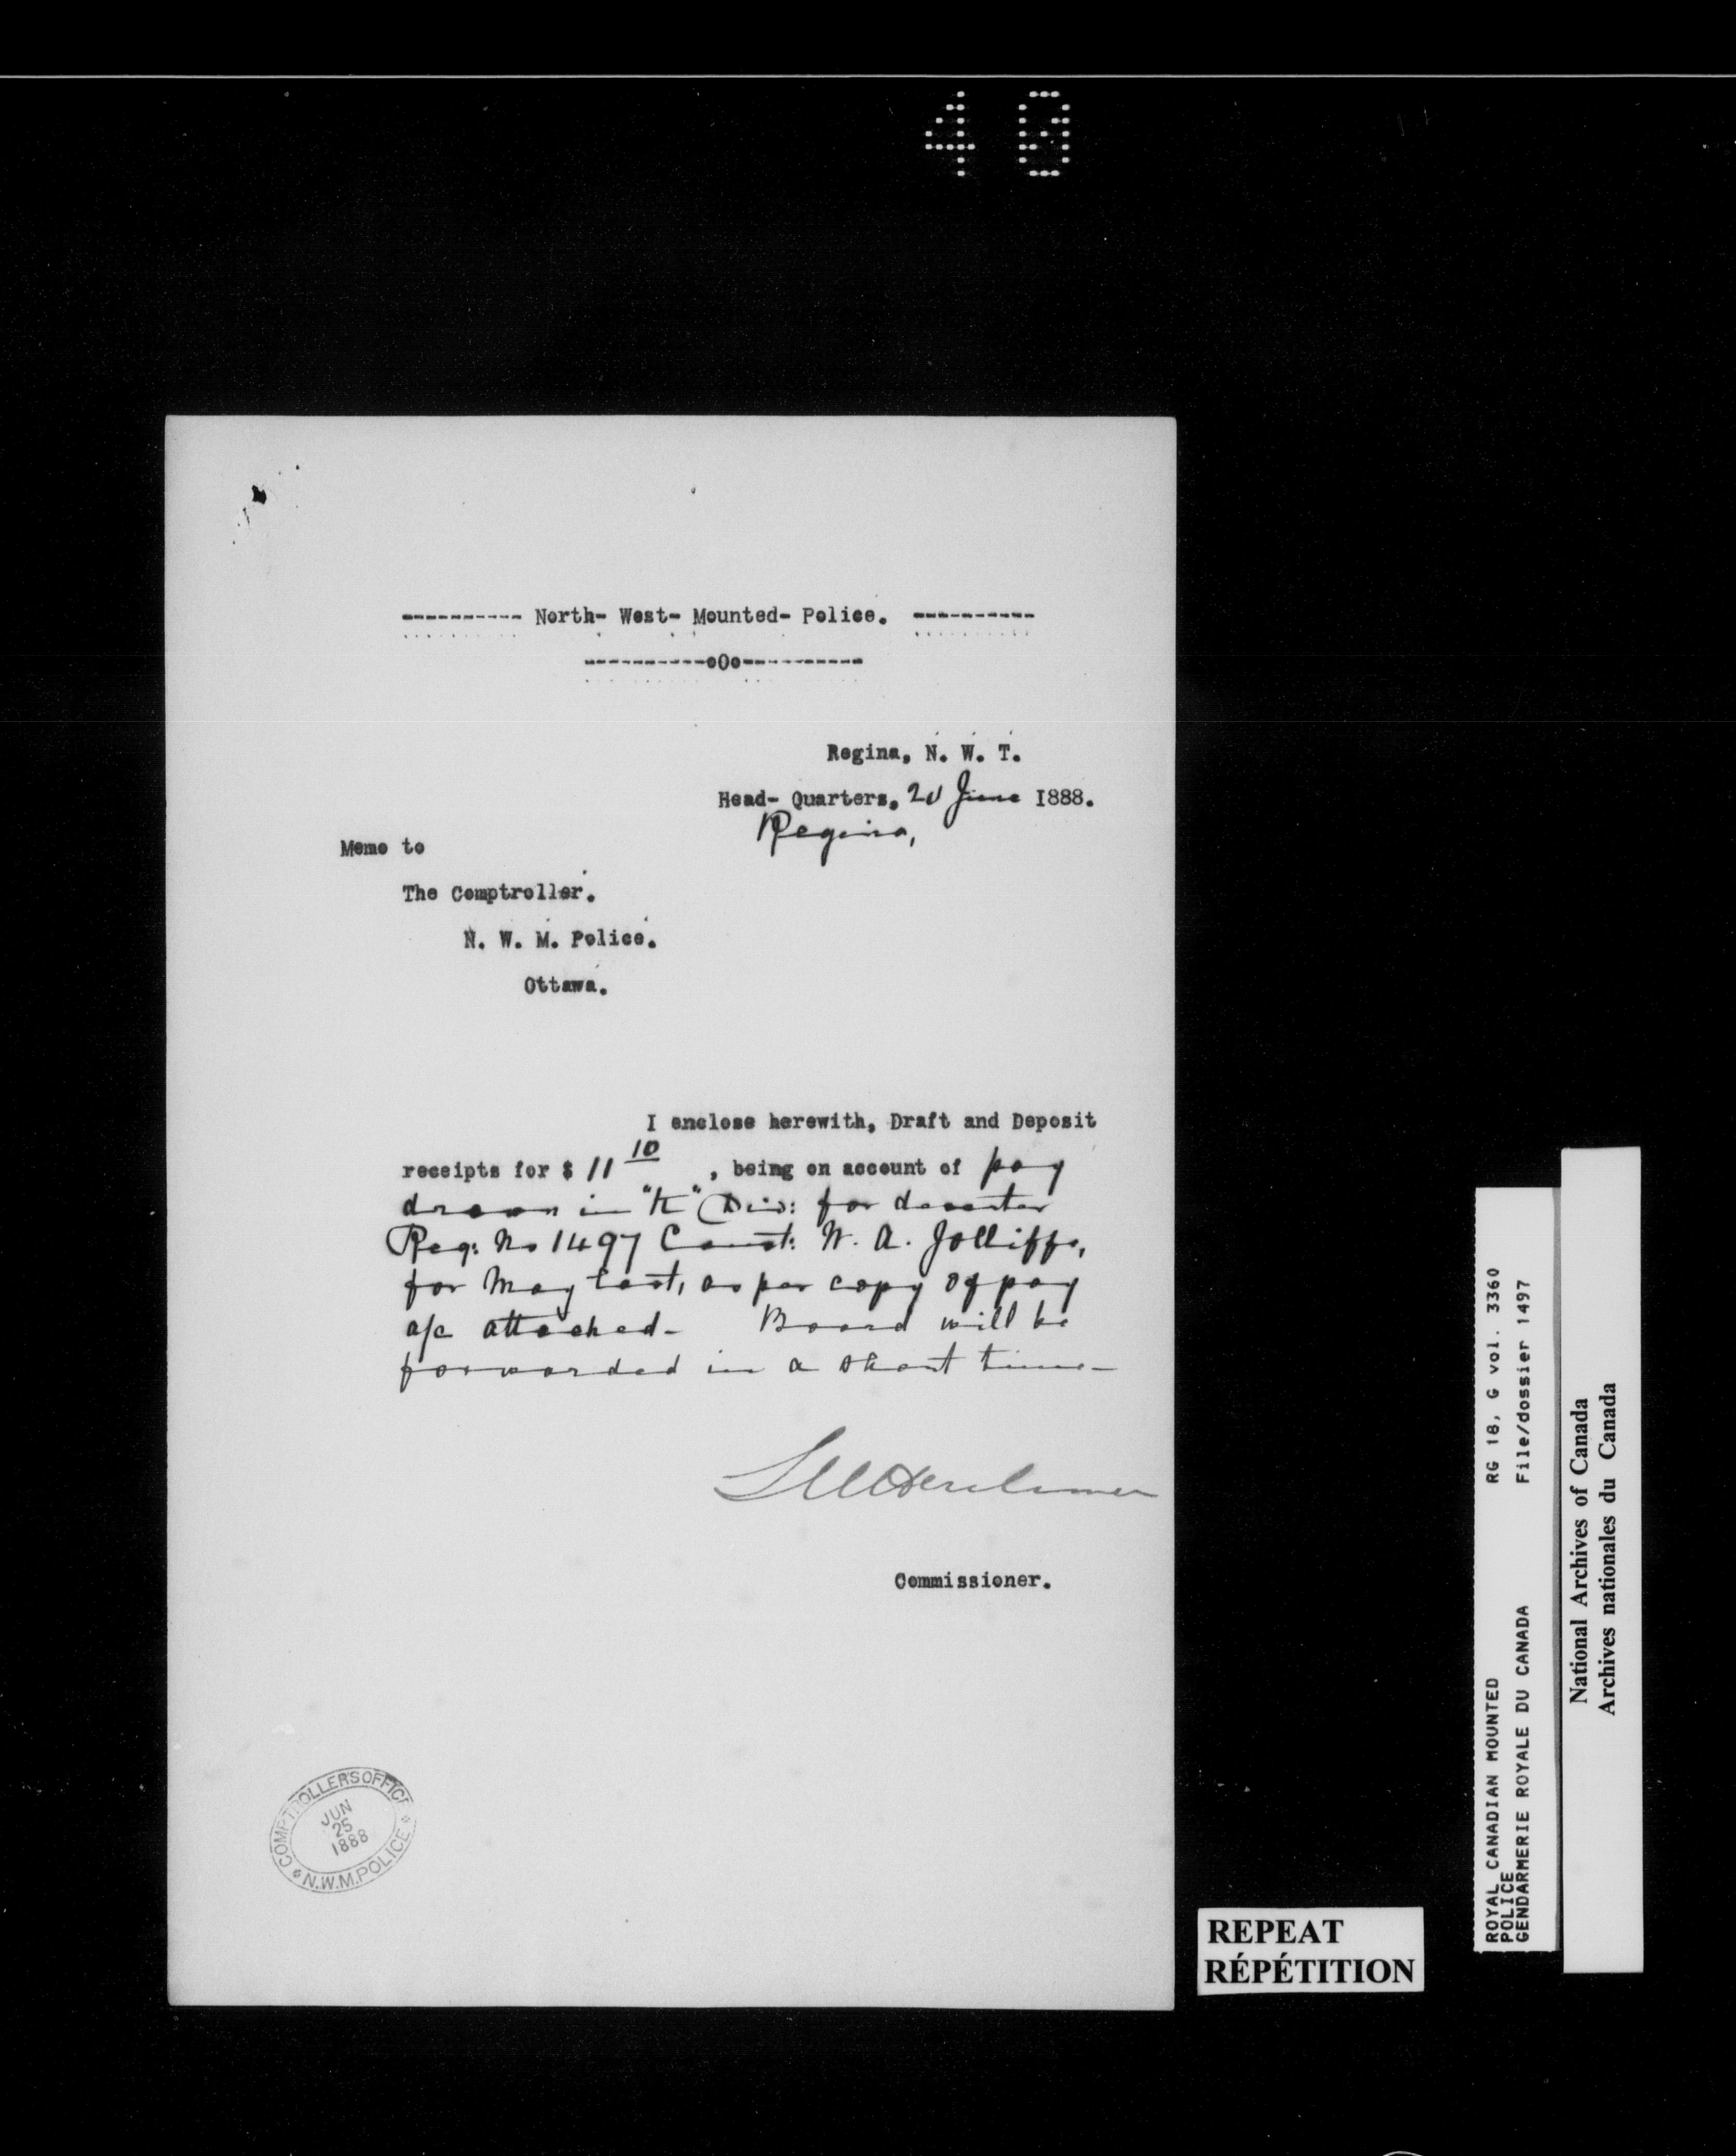 40
---------- North- West- Mounted- Police. ----------
----------o0o----------
Regina, N. W. T.
Head- Quarters, 20 June 1888.
Regina,
Memo to
The Comptroller.
N. W. M. Police.
Ottawa.
I enclose herewith, Draft and Deposit
receipts for $ 11 10 , being on account of pay
drawn in "K" Div: for deserter
Reg: No 1497 Const: W. A. Jolliffe,
for May last, as per copy of pay
a/c attached - Board will be
forwarded in a short time -
LWHerchmer
Commissioner.
COMPTROLLERS OFFICE
JUN
25
1888
N.W.M.POLICE
REPEAT
RÉPÉTITION
ROYAL CANADIAN MOUNTED
POLICE
GENDARMERIE ROYALE DU CANADA
RG 18, G vol. 3360
File/dossier 1497
National Archives of Canada
Archives nationales du Canada